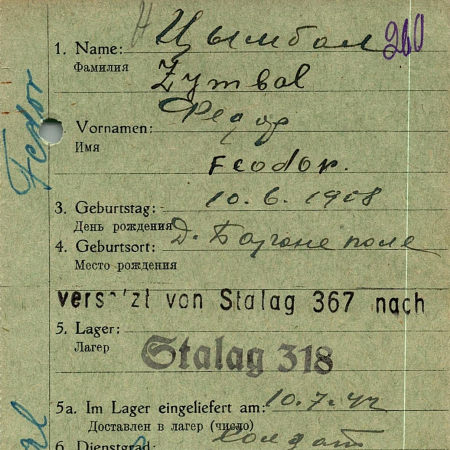 1. Name: Цымбал 260
Фамилия
Zymbal
Федор
Vornamen:
Имя
Feodor.
Fedor
3. Geburtstag: 10.6.1908
День рождения
4. Geburtsort: Д.
Место рождения поле
versetzt von Stalag 367 nach
5. Lager:
Лагер
Stalag 318
5a. Im Lager eingeliefert am: 10.7.42
Доставлен в лагер (число)
6. Dienstgrad: Солдат